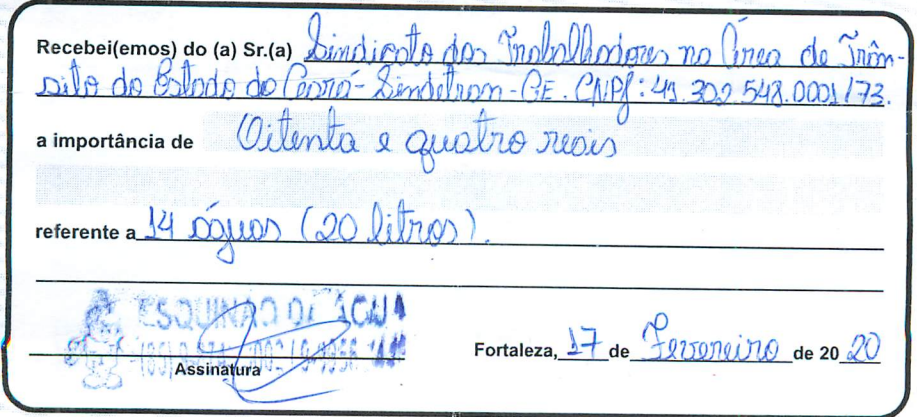 Recebei(emos) do (a) Sr.(a) Sindicato dos Trabalhadores na Área de Trân-
sito do Estado do Ceará - Sindetran - CE. CNPJ: 41.302.548.0001/73.
a importância de Oitenta e quatro reais
referente a 14 águas (20 litros).
ESQUINÃO DA ÁGUA
Fortaleza, 17 de Fevereiro de 20 20
Assinatura